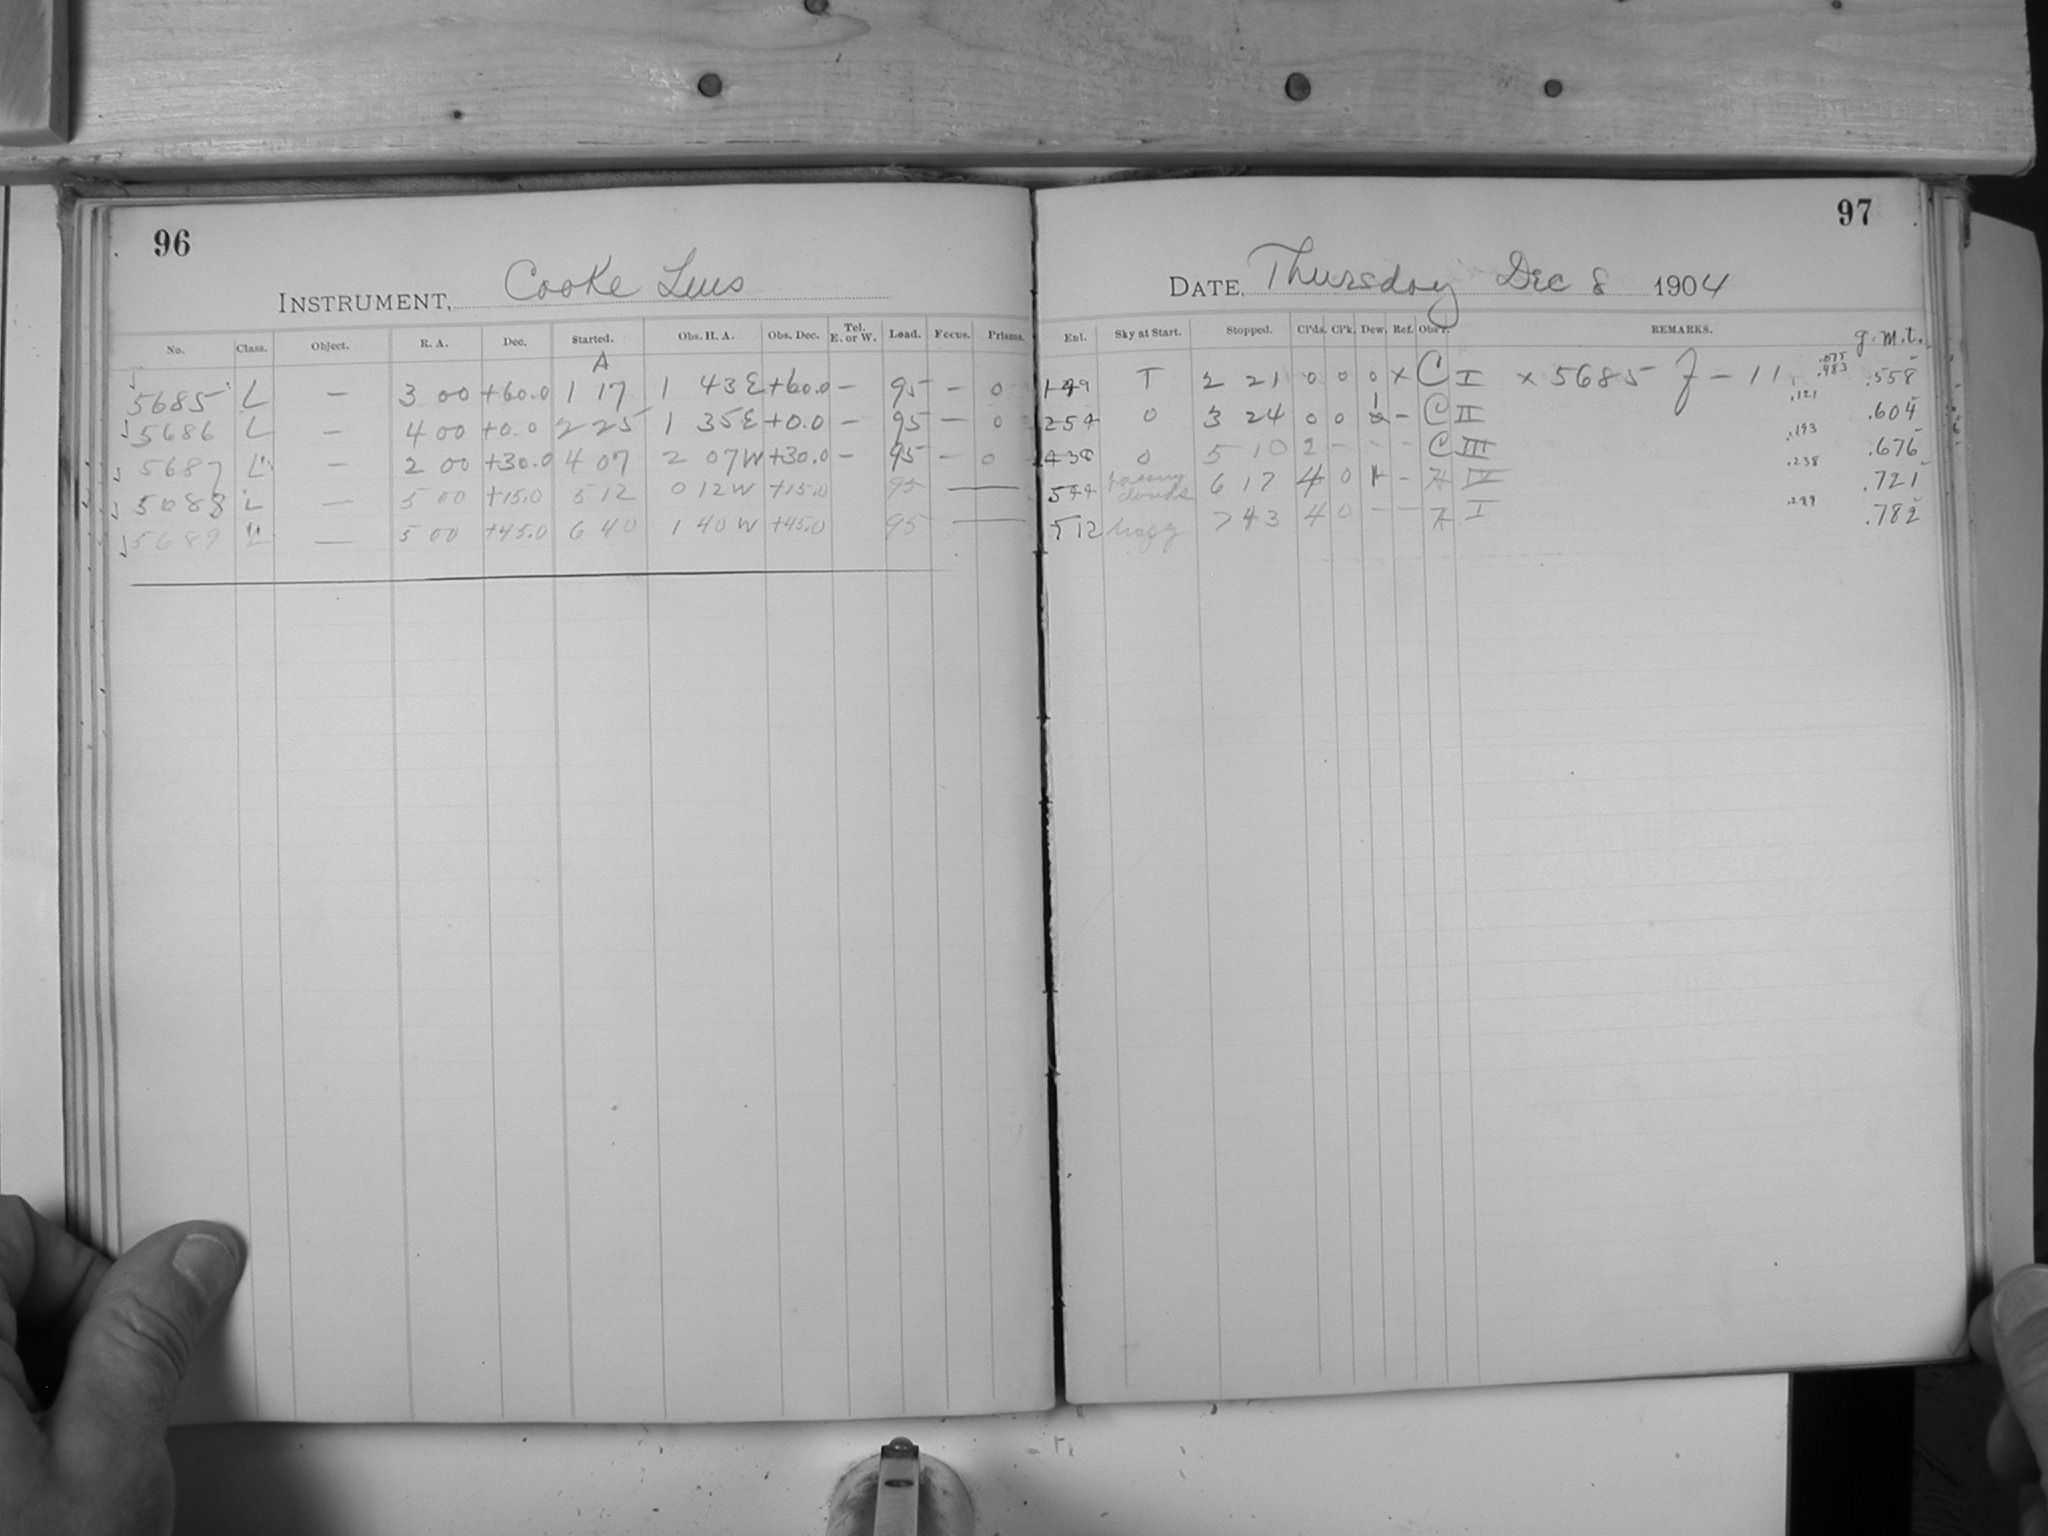 96
INSTRUMENT, Cooke Lens
No. Class. Object. R. A. Dec. Started. Obs. H. A. Obs. Dec. Tel. E. or W. Lead. Focus. Prisms.
A
5685 L — 3 00 +60.0 1 17 1 43 E +60.0 — 95 — 0
5686 L — 4 00 +0.0 2 25 1 35 E +0.0 — 95 — 0
5687 L — 2 00 +30.0 4 07 2 07 W +30.0 — 95 — 0
5688 L — 5 00 +15.0 5 12 0 12 W +15.0 95 —
5689 L — 5 00 +45.0 6 40 1 40 W +45.0 95 —
97
DATE, Thursday Dec 8 1904
Enl. Sky at Start. Stopped. Cl'ds. Cl'k. Dew. Ref. Obs'r. REMARKS. g.m.t.
T 2 21 0 0 0 x C I x 5685 J – 11 .558
0 3 24 0 0 – C II .121 .604
0 5 10 2 – – – C III .193 .676
544 passing clouds 6 17 4 0 – IV .238 .721
512 hazy 7 43 4 0 – – I .299 .782